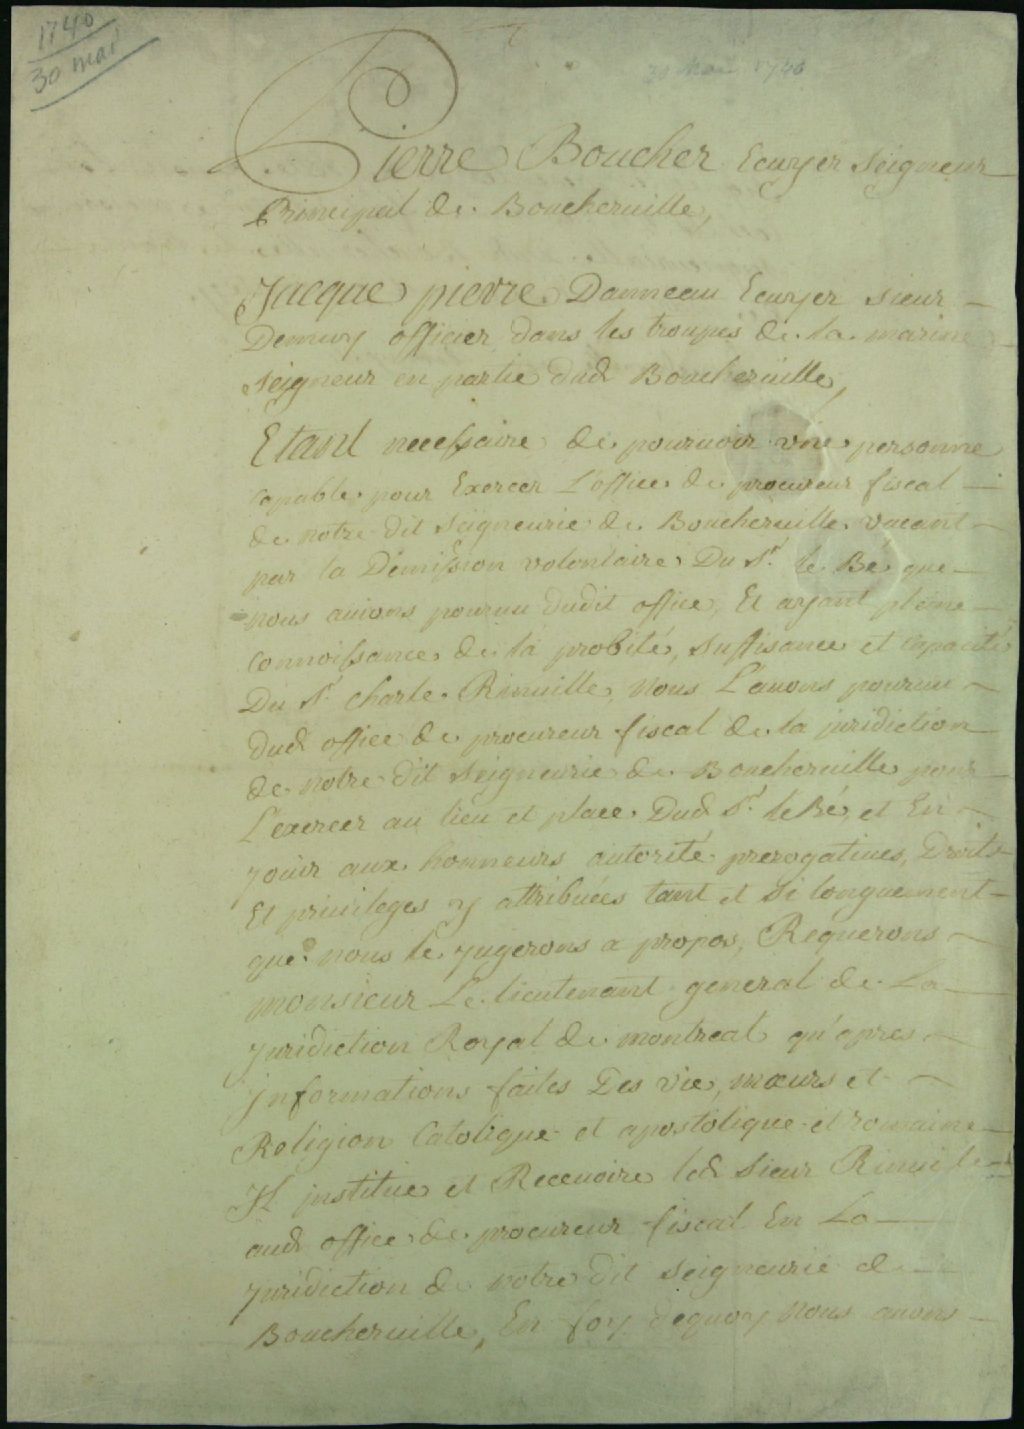 1740
30 mai
30 Mai 1740
Pierre Boucher Ecuyer Seigneur
Principal de Boucherville,
Jacque pierre Danneau Ecuyer sieur
Demuy officier dans les troupes de la marine
seigneur en partie dud Boucherville,
Etant necessaire de pouruoir vne personne
capable pour Exercer L'office de procureur fiscal
de notre dit seigneurie de Boucheruille vacant
par la Démission volontaire Du Sr. le Bé que
nous auions pouruu dudit office, Et ayant pleine
connoissance de la probité, suffisance et capacité
Du Sr. charle Rinuille, Nous L'auons pouruu
dud office de procureur fiscal de la juridiction
de notre dit seigneurie de Boucheruille pour
L'exercer au lieu et place Dud Sr. leBé, et En
jouir aux honneurs autorité prerogatiues, Droits
Et priuileges y attribuées tant et si longuement
que nous le jugerons a propos, Requerons
monsieur Le lieutenant general de La
juridiction Royal de montreal qu'apres
informations faites Des vie, mœurs et
Religion Catolique et apostolique et romaine
Il institue et Receuoire led sieur Rinuille
aud office de procureur fiscal En La
juridiction de notre dit seigneurie de
Boucheruille, En foy dequoy Nous auons